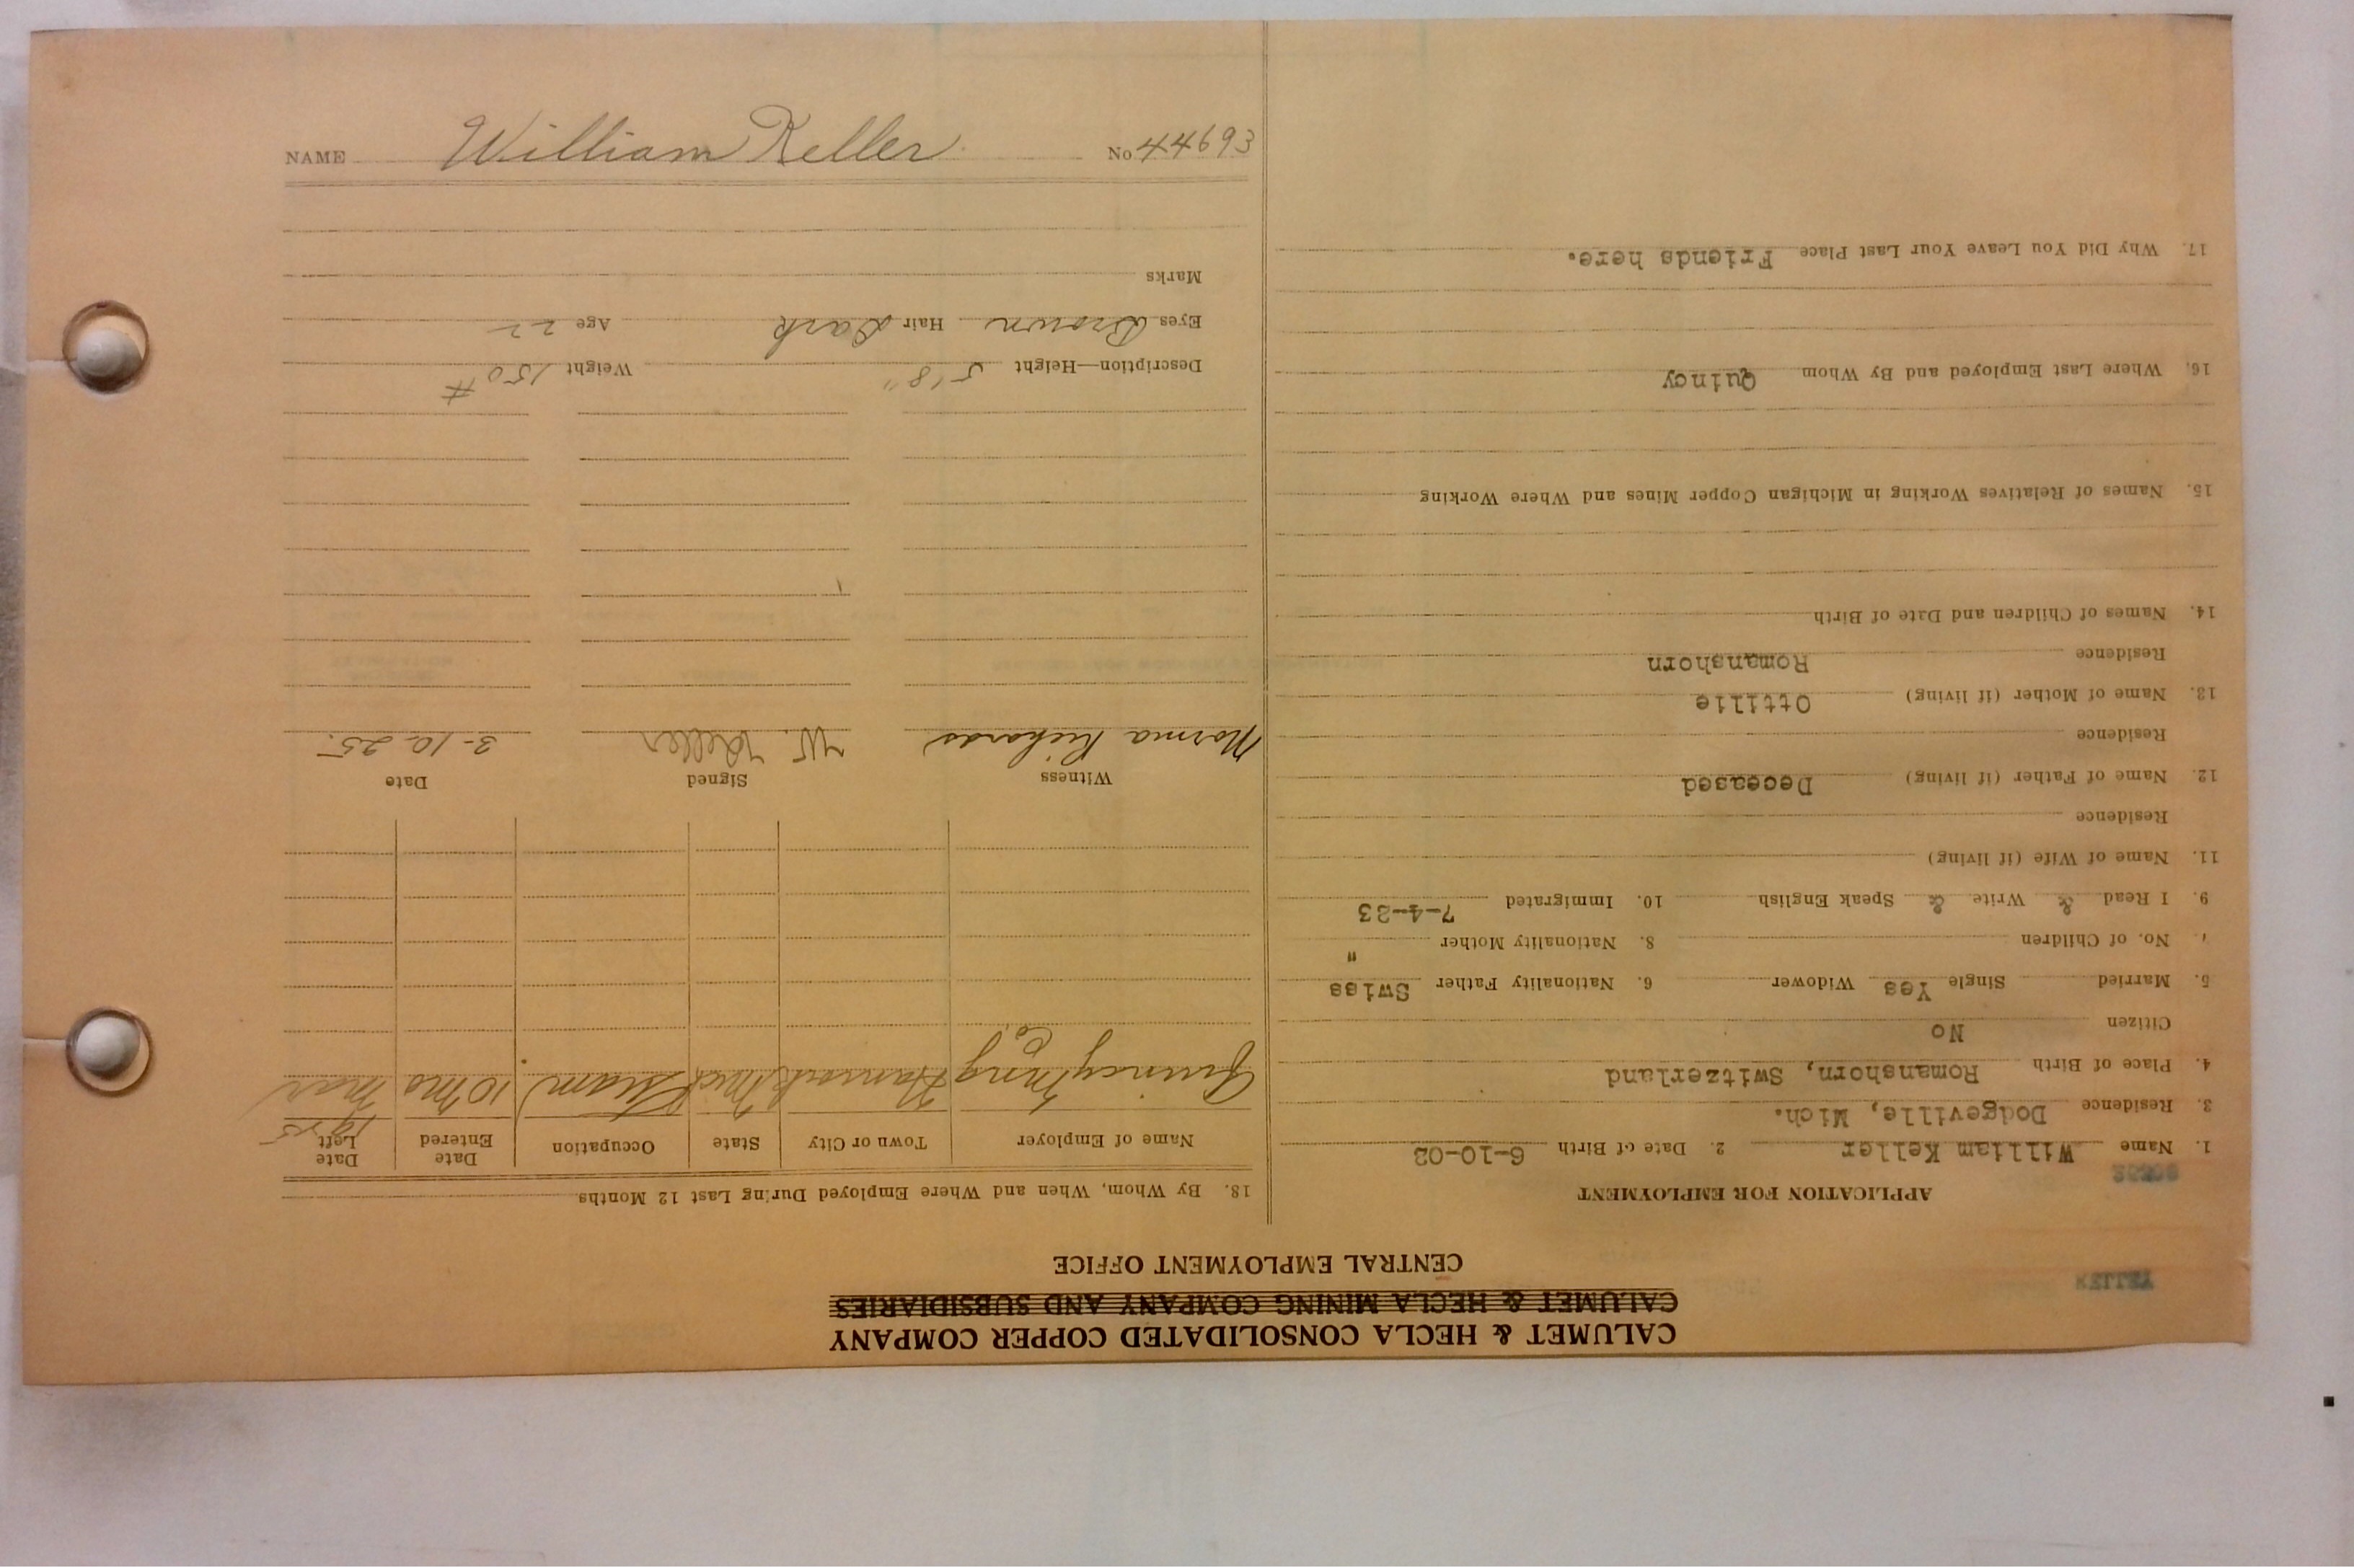 CALUMET & HECLA CONSOLIDATED COPPER COMPANY
CALUMET & HECLA MINING COMPANY AND SUBSIDIARIES
CENTRAL EMPLOYMENT OFFICE
APPLICATION FOR EMPLOYMENT
1. Name William Keller 2. Date of Birth 6-10-02
3. Residence Dodgeville, Mich.
4. Place of Birth Romanshorn, Switzerland
Citizen No
5. Married Single Yes Widower 6. Nationality Father Swiss
7. No. of Children 8. Nationality Mother "
9. I Read & Write & Speak English 10. Immigrated 7-4-23
11. Name of Wife (if living)
Residence
12. Name of Father (if living) Deceased
Residence
13. Name of Mother (if living) Ottilie
Residence Romanshorn
14. Names of Children and Date of Birth
15. Names of Relatives Working in Michigan Copper Mines and Where Working
16. Where Last Employed and By Whom Quincy
17. Why Did You Leave Your Last Place Friends here.
18. By Whom, When and Where Employed During Last 12 Months
Name of Employer Town or City State Occupation Date Entered Date Left
1925
Quincy Mng Co. Hancock Mich 10 Mo Mar
Witness Signed Date
Norma Richards W. Keller 3-10-25.
Description—Height 5'8" Weight 150#
Eyes Brown Hair Dark Age 22
Marks
NAME William Keller No 44693